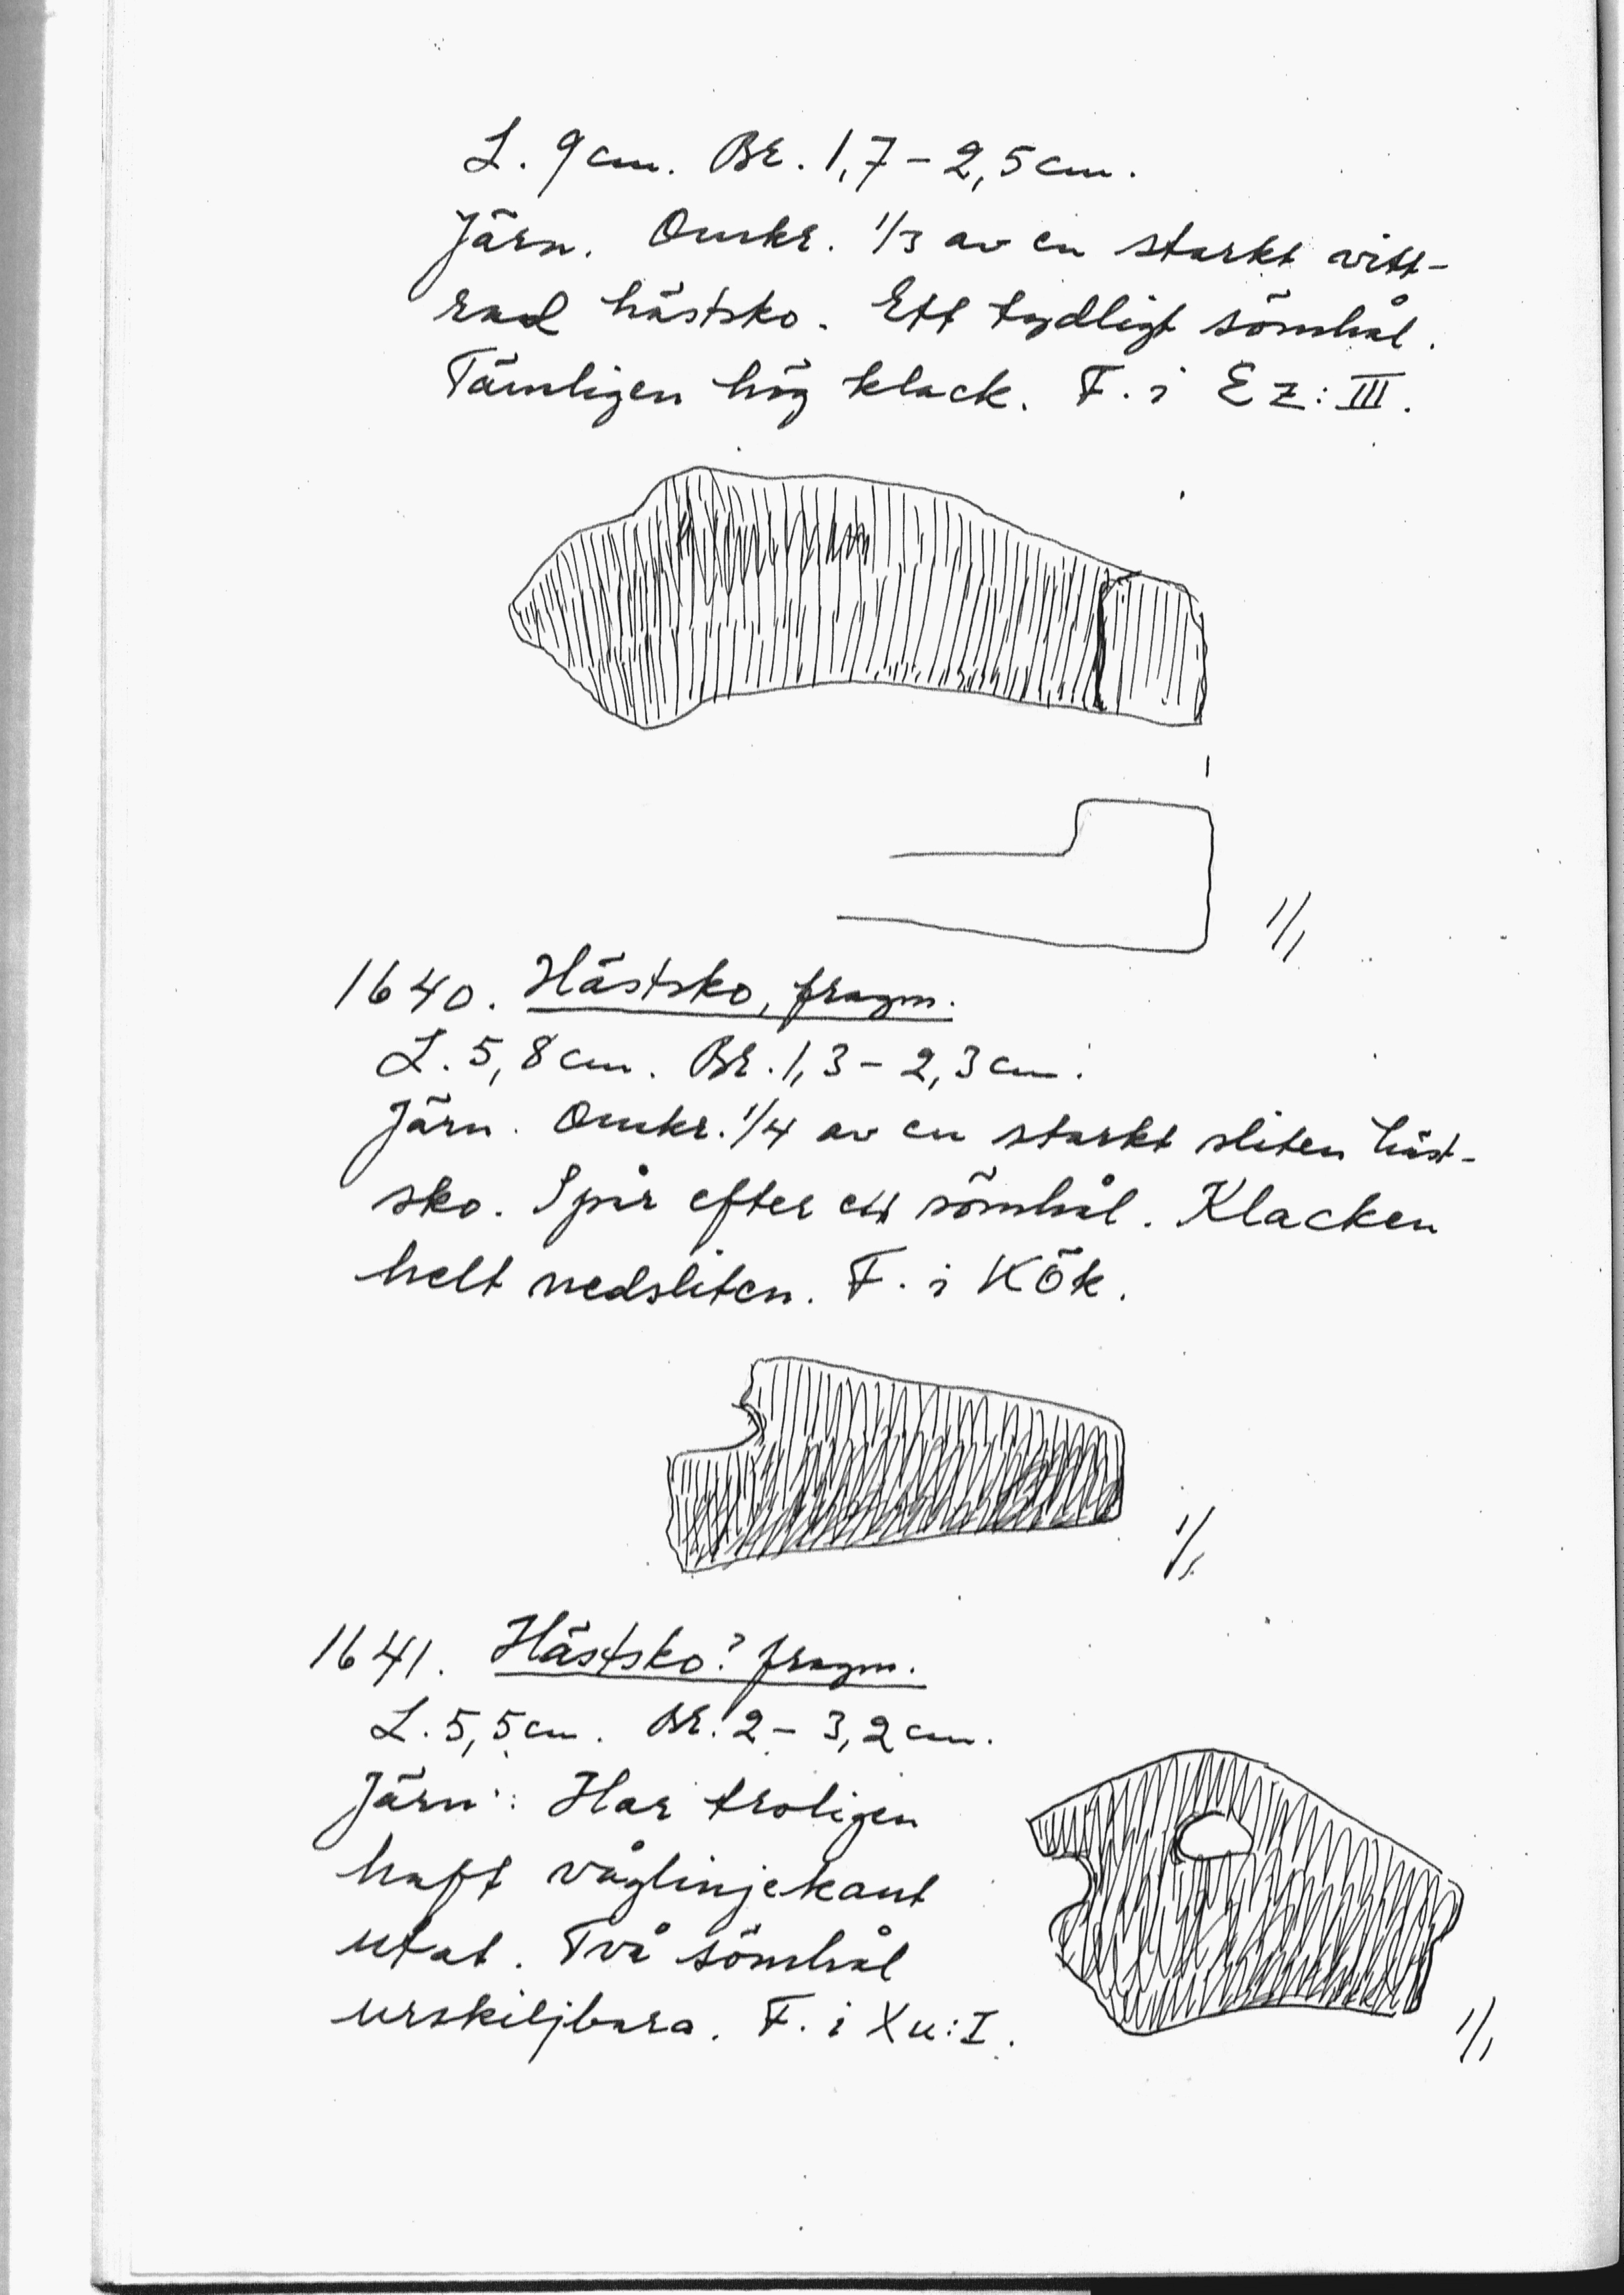 L. 9 cm. Br. 1,7 - 2,5 cm.
Järn. Omkr. 1/3 av en starkt vitt-
rad hästsko. Ett tydligt sömhål.
Tämligen hög klack. F. i Ez: III.
1/1
1640. Hästsko, fragm.
L. 5,8 cm. Br. 1,3 - 2,3 cm.
Järn. Omkr. 1/4 av en starkt sliten häst-
sko. Spår efter ett sömhål. Klacken
helt nedsliten. F. i Kök.
1/1
1641. Hästsko? fragm.
L. 5,5 cm. Br. 2 - 3,2 cm.
Järn. Har troligen
haft våglinjekant
utåt. Två sömhål
urskiljbara. F. i Xu: I.
1/1